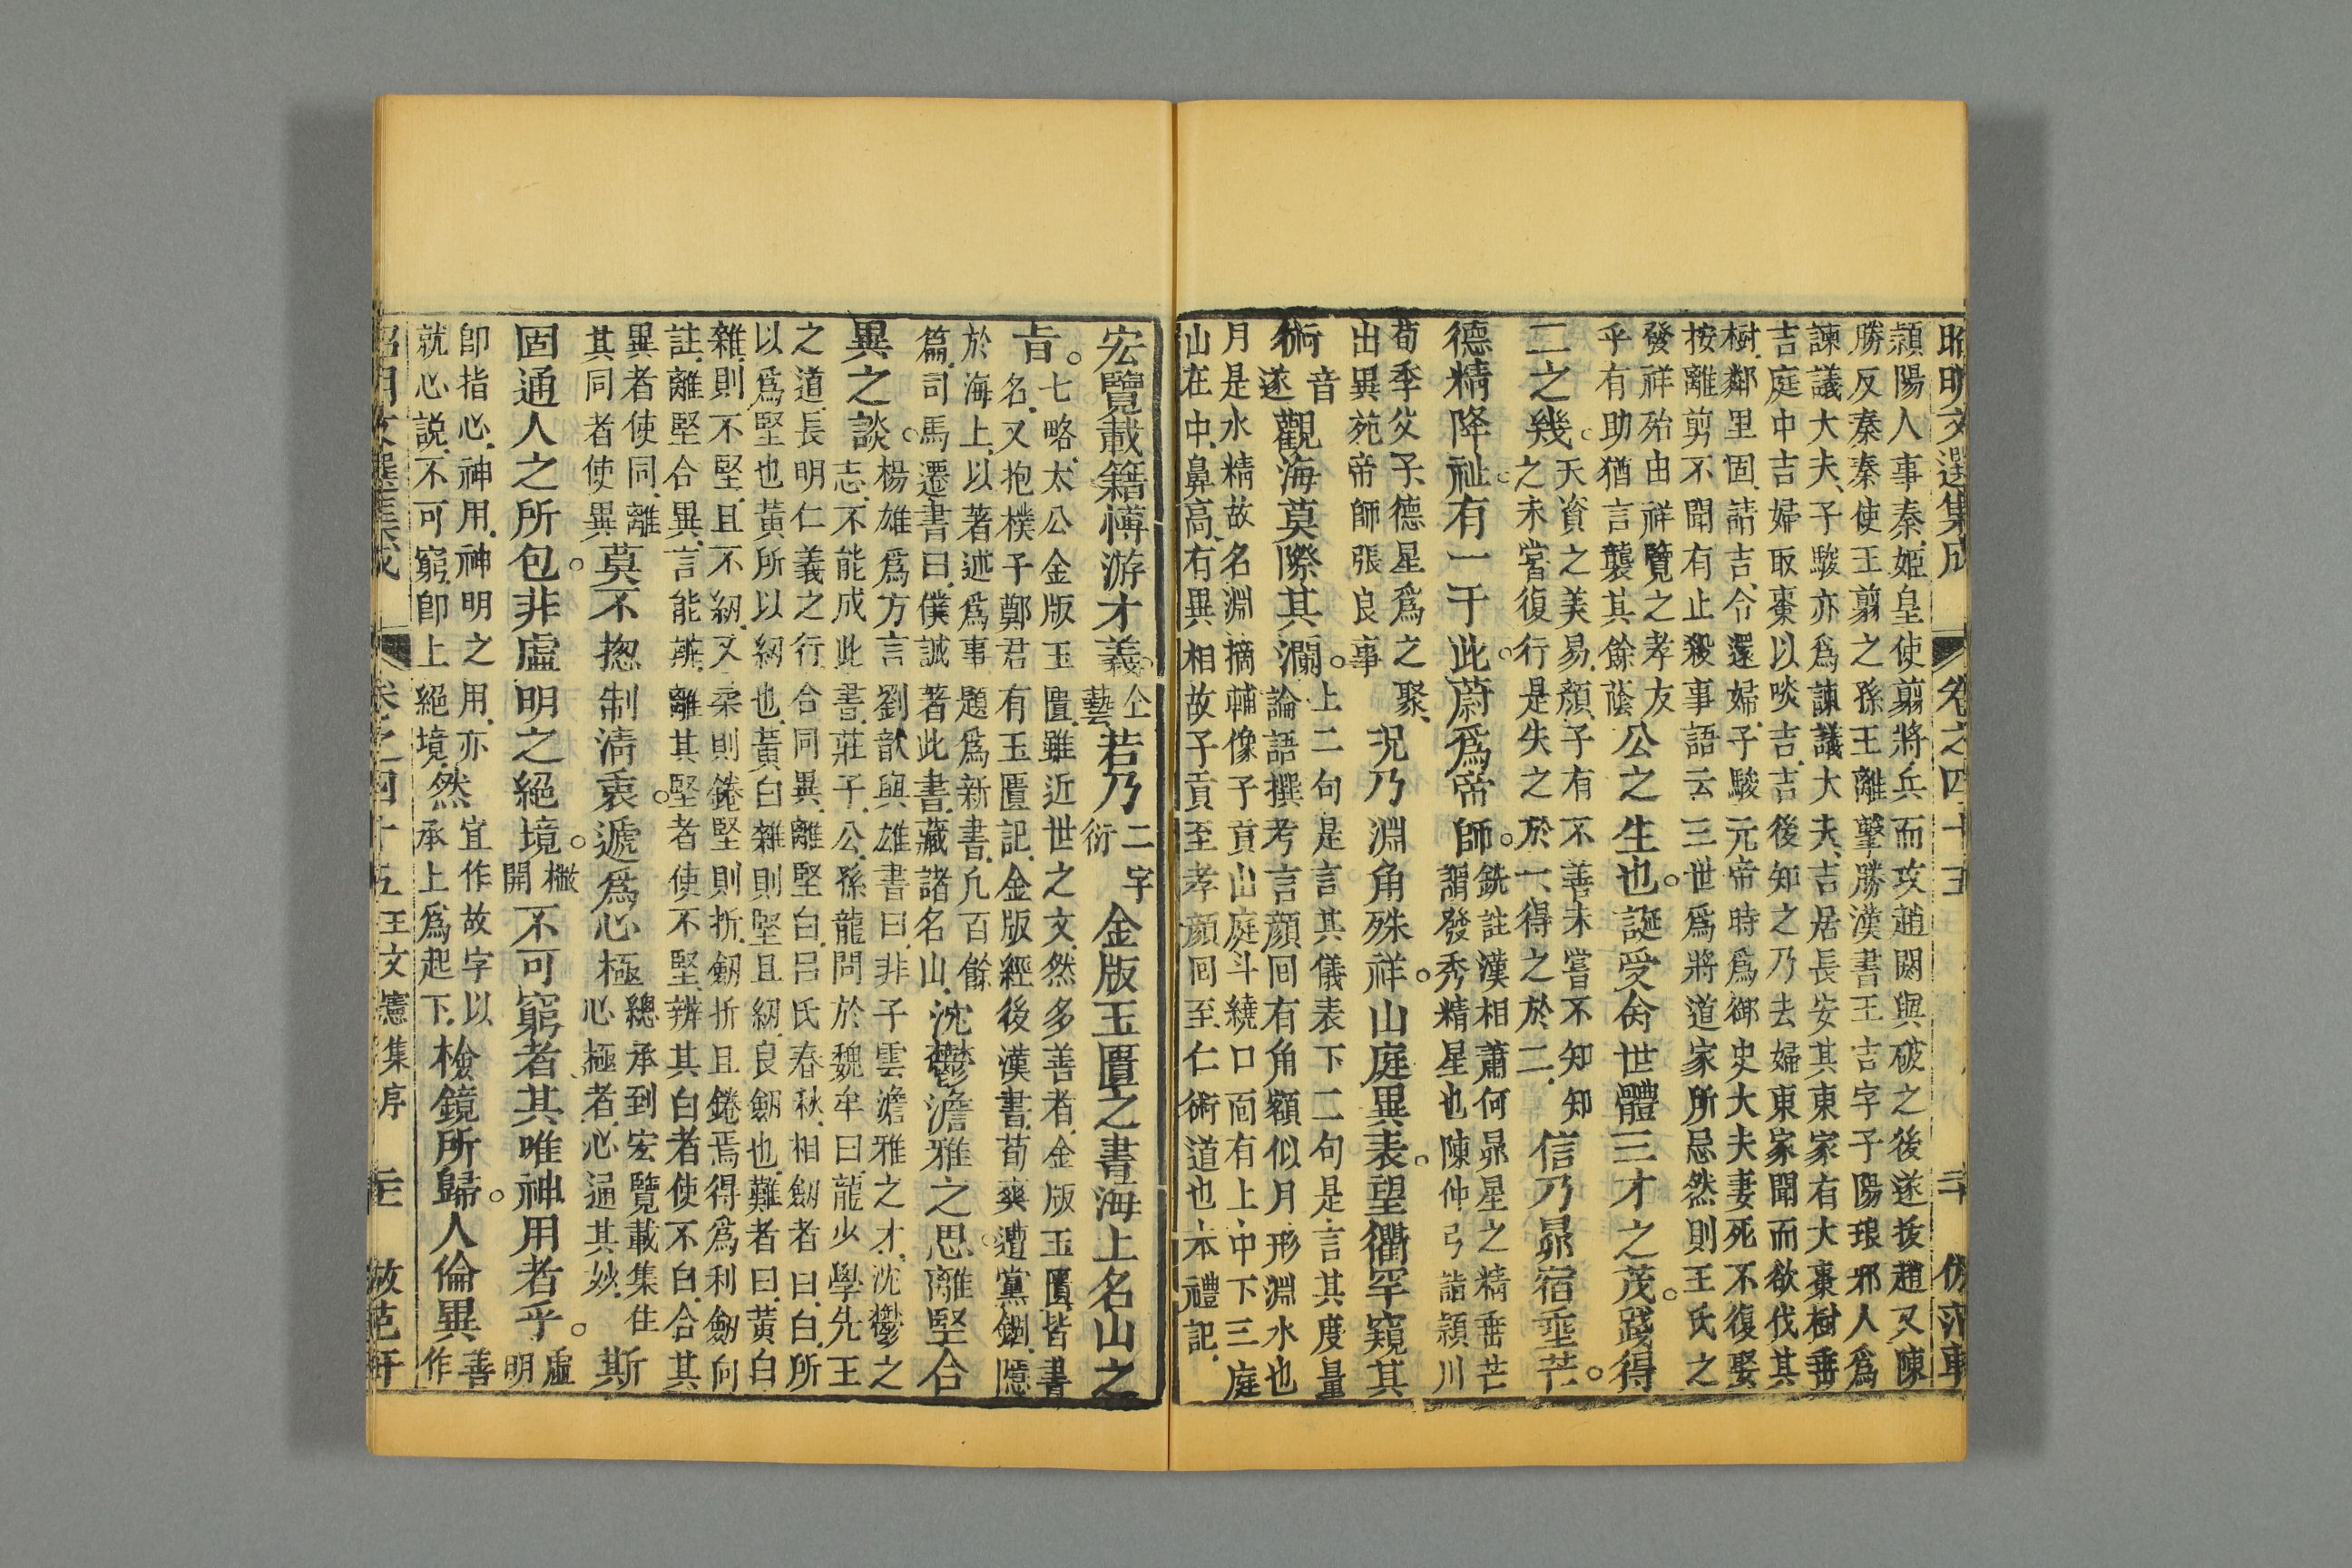 昭明文選集成 卷之四十五
潁陽人事秦姬皇使翦將兵而攻趙閼與破之後遂拔趙又陳
勝反秦秦使王翦之孫王離擊勝漢書王吉字子陽琅邪人爲
諫議大夫子駿亦爲諫議大夫吉居長安其東家有大棗樹垂
吉庭中吉婦取棗以啖吉吉後知之乃去婦東家聞而欲伐其
樹鄰里固請吉令還婦子駿元帝時爲御史大夫妻死不復娶
按離剪不聞有止殺事語云三世爲將道家所忌然則王氏之
發祥殆由祥覽之孝友
乎有助猶言襲其餘蔭
公之生也。誕受命世體三才之茂。踐得
二之幾。
天資之美易顏子有不善未嘗不知知
之未嘗復行是失之於一得之於二
信乃昴宿垂芒。
德精降祉。有一于此。蔚爲帝師。
銑註漢相蕭何昴星之精垂芒
謂發秀精星也陳仲弓詣潁川
荀季父子德星爲之聚
出異苑帝師張良事
況乃淵角殊祥。山庭異表。望衢罕窺其
術
音
遂
觀海莫際其瀾。
上二句是言其儀表下二句是言其度量
論語撰考言顏回有角額似月形淵水也
月是水精故名淵摘輔像子貢山庭斗繞口面有上中下三庭
山在中鼻高有異相故子貢至孝顏回至仁術道也本禮記
宏覽載籍博游才義。
仝
藝
若乃
二字
衍
金版玉匱之書海上名山之
旨。
七略太公金版玉匱雖近世之文然多善者金版玉匱皆書
名又抱樸子鄭君有玉匱記金版經後漢書荀爽遭黨錮隱
於海上以著述爲事題爲新書凡百餘
篇司馬遷書曰僕誠著此書藏諸名山
沈鬱澹雅之思。離堅合
異之談。
楊雄爲方言劉歆與雄書曰非子雲澹雅之才沈鬱之
志不能成此書莊子公孫龍問於魏牟曰龍少學先王
之道長明仁義之行合同異離堅白呂氏春秋相劒者曰白所
以爲堅也黃所以紉也黃白雜則堅且紉良劒也難者曰黃白
雜則不堅且不紉又柔則錈堅則折劒折且錈焉得爲利劒向
註離堅合異言能辨離其堅者使不堅辨其白者使不白合其
異者使同離
其同者使異
莫不揔制清衷。遞爲心極
總承到宏覽載集住
心極者心逼其妙
斯
固通人之所包。非虛明之絕境。
檄
開
不可窮者其唯神用者乎。
虛
明
卽指心神用神明之用亦
就心說不可窮卽上絕境
然
宜作故字以
承上爲起下
檢鏡所歸。人倫異
善
作
王文憲集序